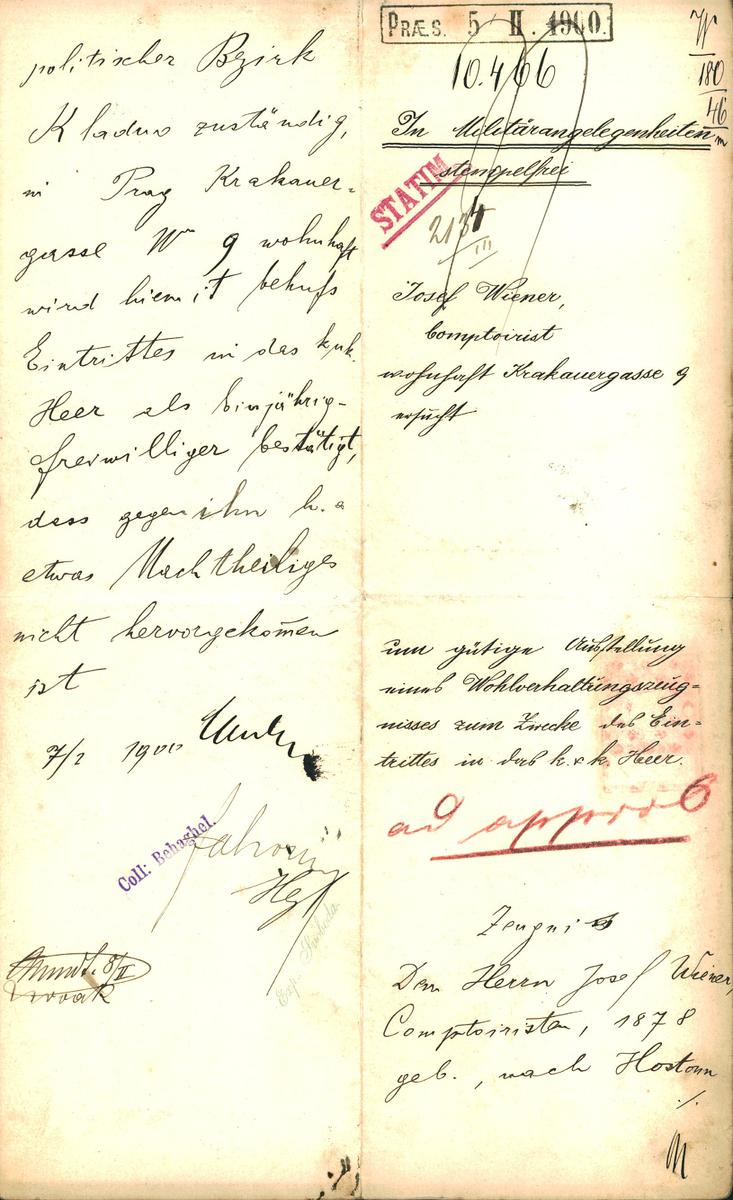 PRÆS. 5 II. 1900.
10.466
W
180
46
In Militärangelegenheiten
stempelfrei
STATIM
2134
III
Josef Wiener,
Comptoirist
wohnhaft Krakauergasse 9
ersucht
um gütige Ausstellung
eines Wohlverhaltungszeug=
nisses zum Zwecke des Ein=
trittes in das k. & k. Heer.
ad approb
Zeugnis
Dem Herrn Josef Wiener,
Comptoiristen, 1878
geb., nach Hostoun
./.
politischer Bezirk
Kladno zuständig,
in Prag Krakauer=
gasse No 9 wohnhaft
wird hiemit behufs
Eintrittes in das k.u.k.
Heer als Einjährig-
freiwilliger bestätigt,
dass gegen ihn h. a
etwas Nachtheiliges
nicht hervorgekom̄en
ist
7/2 1900
Coll: Behaghel.
Exp. Svoboda
Mundt. 8/II
Dvorak